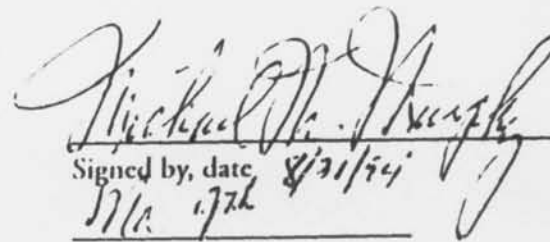 Michael M. Murphy
Signed by, date 8/31/94
17th